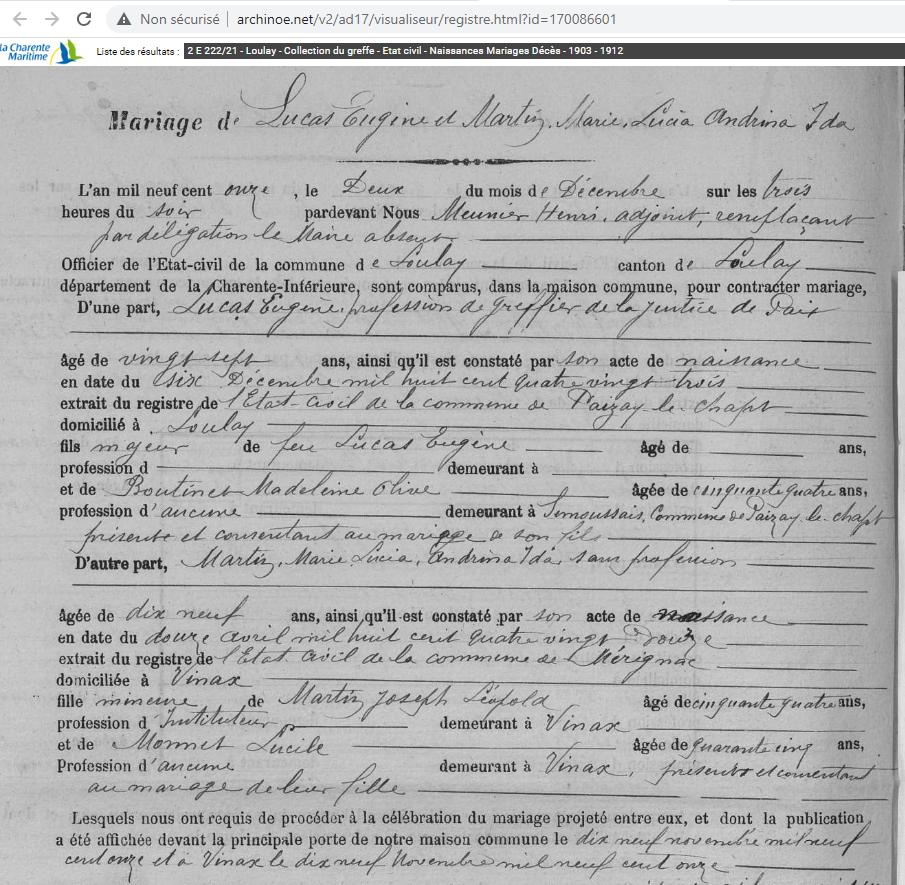 Non sécurisé | archinoe.net/v2/ad17/visualiseur/registre.html?id=170086601
la Charente Maritime Liste des résultats : 2 E 222/21 - Loulay - Collection du greffe - Etat civil - Naissances Mariages Décès - 1903 - 1912
Mariage de Lucas Eugène et Martin, Marie, Lucia Andrina Ida
L'an mil neuf cent onze, le Deux du mois de Décembre sur les trois
heures du soir pardevant Nous Meunier Henri, adjoint, remplaçant
par délégation le Maire absent
Officier de l'Etat-civil de la commune de Loulay canton de Loulay
département de la Charente-Inférieure, sont comparus, dans la maison commune, pour contracter mariage,
D'une part, Lucas Eugène, profession de greffier de la justice de Paix
âgé de vingt sept ans, ainsi qu'il est constaté par son acte de naissance
en date du six Décembre mil huit cent quatre vingt trois
extrait du registre de l'Etat-civil de la commune de Paizay-le-chapt
domicilié à Loulay
fils majeur de feu Lucas Eugène âgé de ans,
profession d demeurant à
et de Boutinet Madeleine Olive âgée de cinquante quatre ans,
profession d'aucune demeurant à Commune de Paizay le chapt
présente et consentant au mariage de son fils
D'autre part, Martin, Marie Lucia, Andrina Ida, sans profession
âgée de dix neuf ans, ainsi qu'il est constaté par son acte de naissance
en date du douze avril mil huit cent quatre vingt Douze
extrait du registre de l'Etat civil de la commune de Mérignac
domiciliée à Vinax
fille mineure de Martin Joseph Léopold âgé de cinquante quatre ans,
profession d'Instituteur demeurant à Vinax
et de Monnet Lucile âgée de quarante cinq ans,
Profession d'aucune demeurant à Vinax, présents et consentant
au mariage de leur fille
Lesquels nous ont requis de procéder à la célébration du mariage projeté entre eux, et dont la publication
a été affichée devant la principale porte de notre maison commune le dix neuf novembre mil neuf
cent onze et à Vinax le dix neuf Novembre mil neuf cent onze